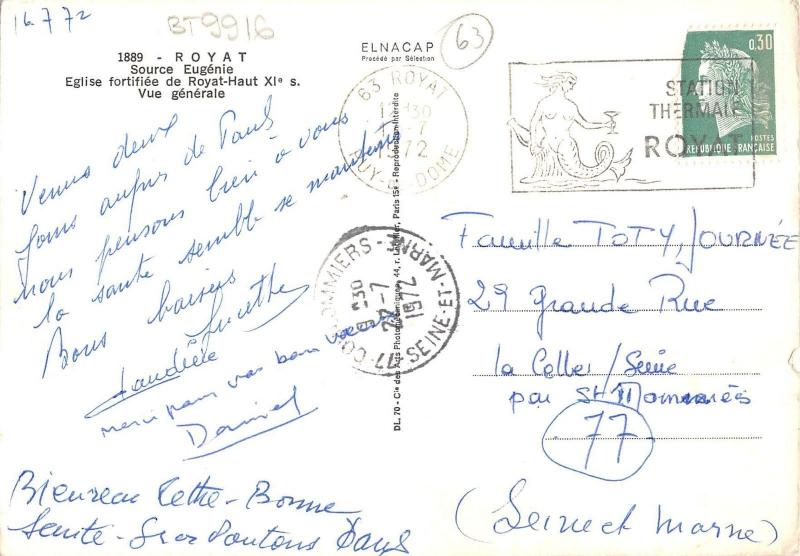 16.7.72
BT9916
1889 - ROYAT
Source Eugénie
Eglise fortifiée de Royat-Haut XIe s.
Vue générale
ELNACAP
Procédé par Sélection
63
63 ROYAT
12H30
-7
1972
PUY-DE-DOME
STATION
THERMALE
ROYAT
0,30
POSTES
REPUBLIQUE FRANÇAISE
Venus deux
jours auprès de Paul
nous pensons bien à vous
la santé semble se maintenir
Bons baisers
Lucette
merci pour vos bons
Daniel
Bonne
Santé
DL. 70 - Cie des Arts Photomécaniques, 44, r. Paris 15e - Reproduction interdite
77 COULOMMIERS
22-7
1972
SEINE-ET-MARNE
Famille TOTY, JOURNÉE
29 Grande Rue
la Celle / Seine
par St Mammès
77
(Seine et Marne)